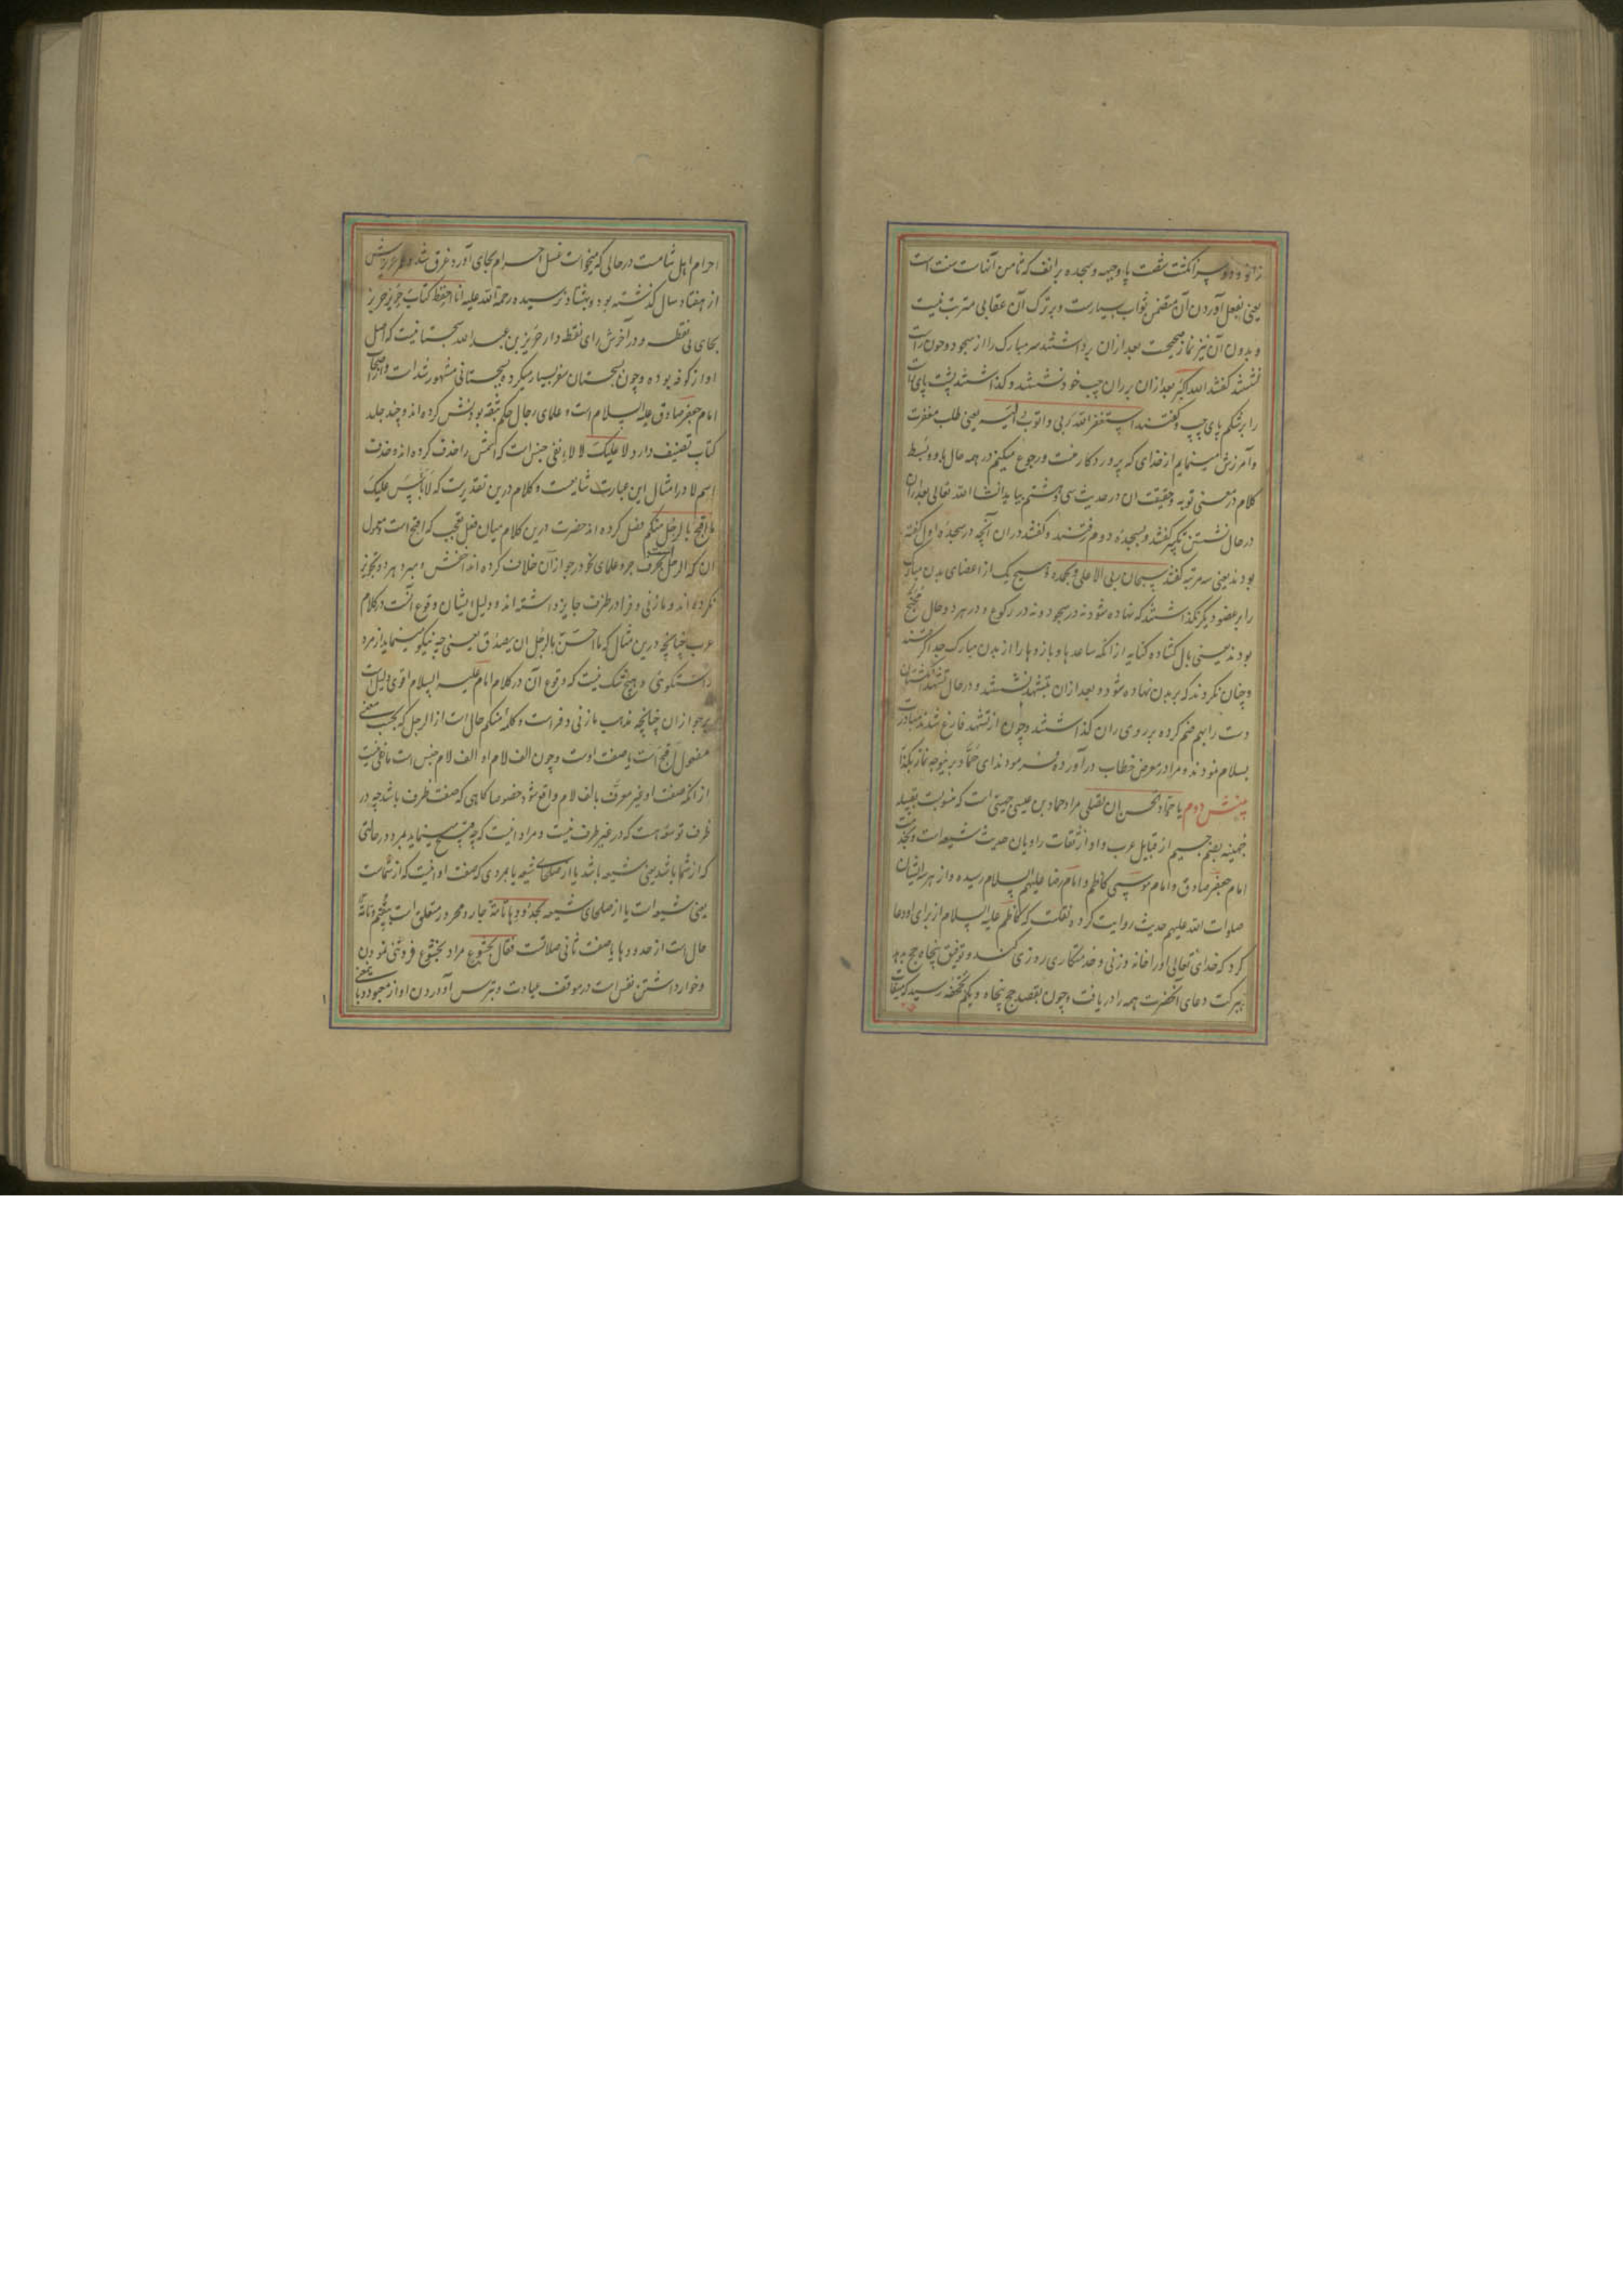 زانو و دو سر انگشت شصت پا و جبهه و سجده بر انف که ثامن آنهاست سنت است
یعنی بفعل آوردن آن متضمن ثواب بسیارست و بر ترک آن عقابی مترتب نیست
و بدون آن نیز نماز صحیحست بعد ازان برداشتند سر مبارک را از سجود و چون راست
نشستند گفتند الله اکبر بعد ازان بر ران چپ خود نشستند و گذاشتند پشت پای راست
را بر شکم پای چپ و گفتند استغفر الله ربی و اتوب الیه یعنی طلب مغفرت
و آمرزش مینمایم از خدای که پروردکار منست و رجوع میکنم در همه حال باو و بسط
کلام در معنی توبه و حقیقت ان در حدیث سی و هشتم بیاید انشا الله تعالی بعد ازان
در حال نشستن تکبیر گفتند و بسجده دوم رفتند و گفتند در ان آنچه در سجدهٔ اول گفته
بودند یعنی سه مرتبه گفتند سبحان ربی الاعلی و بحمده و هیچ یک از اعضای بدن مبارک
را بر عضو دیگر نگذاشتند که نهاده شود نه در سجود و نه در رکوع و در هر دو حال مجنح
بودند یعنی بال کشاده کنایه از انکه ساعدها و بازوها را از بدن مبارک جدا گرفتند
و چنان نکردند که بر بدن نهاده شود و بعد ازان بتشهد نشستند و در حال تشهد انگشتان
دست را بهم ضم کرده بر روی ران گذاشتند و چون از تشهد فارغ شدند مبادرت
بسلام نمودند و مرا در معرض خطاب در آورده فرمودند ای حماد برینوجه نماز بگذار
بینش دوم یا حماد تحسن ان تصلی مراد حماد بن عیسی جهنی است که منسوبست بقبیله
جهینه بضم جیم از قبایل عرب و او از ثقات راویان حدیث شیعه است و بخدمت
امام جعفر صادق و امام موسی کاظم و امام رضا علیهم السلام رسیده و از هر سه ایشان
صلوات الله علیهم حدیث روایت کرده نقلست که کاظم علیه السلام از برای او دعا
کرد که خدای تعالی او را خانه و زنی و خدمتکاری روزی کند و توفیق پنجاه حج بدهد
ببرکت دعای آنحضرت همه را دریافت و چون بقصد حج پنجاه و یکم بجحفه رسید که میقات
احرام اهل شامست در حالی که میخواست غسل احرام بجای آورد غرق شد و عمر عزیزش
از هفتاد سال گذشته بود و بهشتاد نرسیده رحمة الله علیه انا احفظ کتاب حریز حریز
بحای بی نقطه و در آخرش زای نقطه دار حریز بن عبد الله سجستانیست که اصل
او از کوفه بوده و چون بسجستان سفر بسیار میکرد بسجستانی مشهور شد است و از اصحاب
امام جعفر صادق علیه السلام است و علمای رجال حکم بثقه بودنش کرده اند و چند جلد
کتاب تصنیف دارد لا علیک لا لاء نفی جنس است که اسمش را حذف کرده اند و حذف
اسم لا در امثال این عبارت شایعست و کلام درین تقدیرست که لا باس علیک
ما اقبح بالرجل منکم فصل کرده اند حضرت درین کلام میان فعل تعجب که اقبح است و معمول
ان که الرجل است بحرف جر و علمای نحو در جواز آن خلاف کرده اند اخفش و مبرد هر دو تجویز
نکرده اند و مازنی و فرا در ظرف جایز داشته اند و دلیل ایشان وقوع آنست در کلام
عرب چنانچه درین مثال که ما احسن بالرجل ان یصدق یعنی چه نیکو مینماید از مرد
راستگوئی و هیچ شک نیست که وقوع آن در کلام امام علیه السلام اقوی دلیل است
بر جواز ان چنانچه مذهب مازنی و فراست و کلمهٔ منکم حال است از الرجل که بحسب معنی
مفعول اقبح است یا صفت اوست و چون الف لام او الف لام جنس است مانعی نیست
از انکه صفت او غیر معرف بالف لام واقع شود خصوصا گاهی که صفت ظرف باشد چه در
ظرف توسعه هست که در غیر ظرف نیست و مراد اینست که چه قبیح مینماید بمرد در حالتی
که از شما باشد یعنی شیعه باشد یا از صلحای شیعه یا بمردی که صفت او اینست که از شماست
یعنی شیعه است یا از صلحای شیعه بحدودها تامة جار و مجرور متعلق است بیقیم و تامة
حال است از حدودها یا صفت ثانی صلاتست فقال بخشوع مراد بخشوع فروتنی نمودن
و خوار داشتن نفس است در موقف عبادت و بترس آوردن او از معبود و با بمعنی